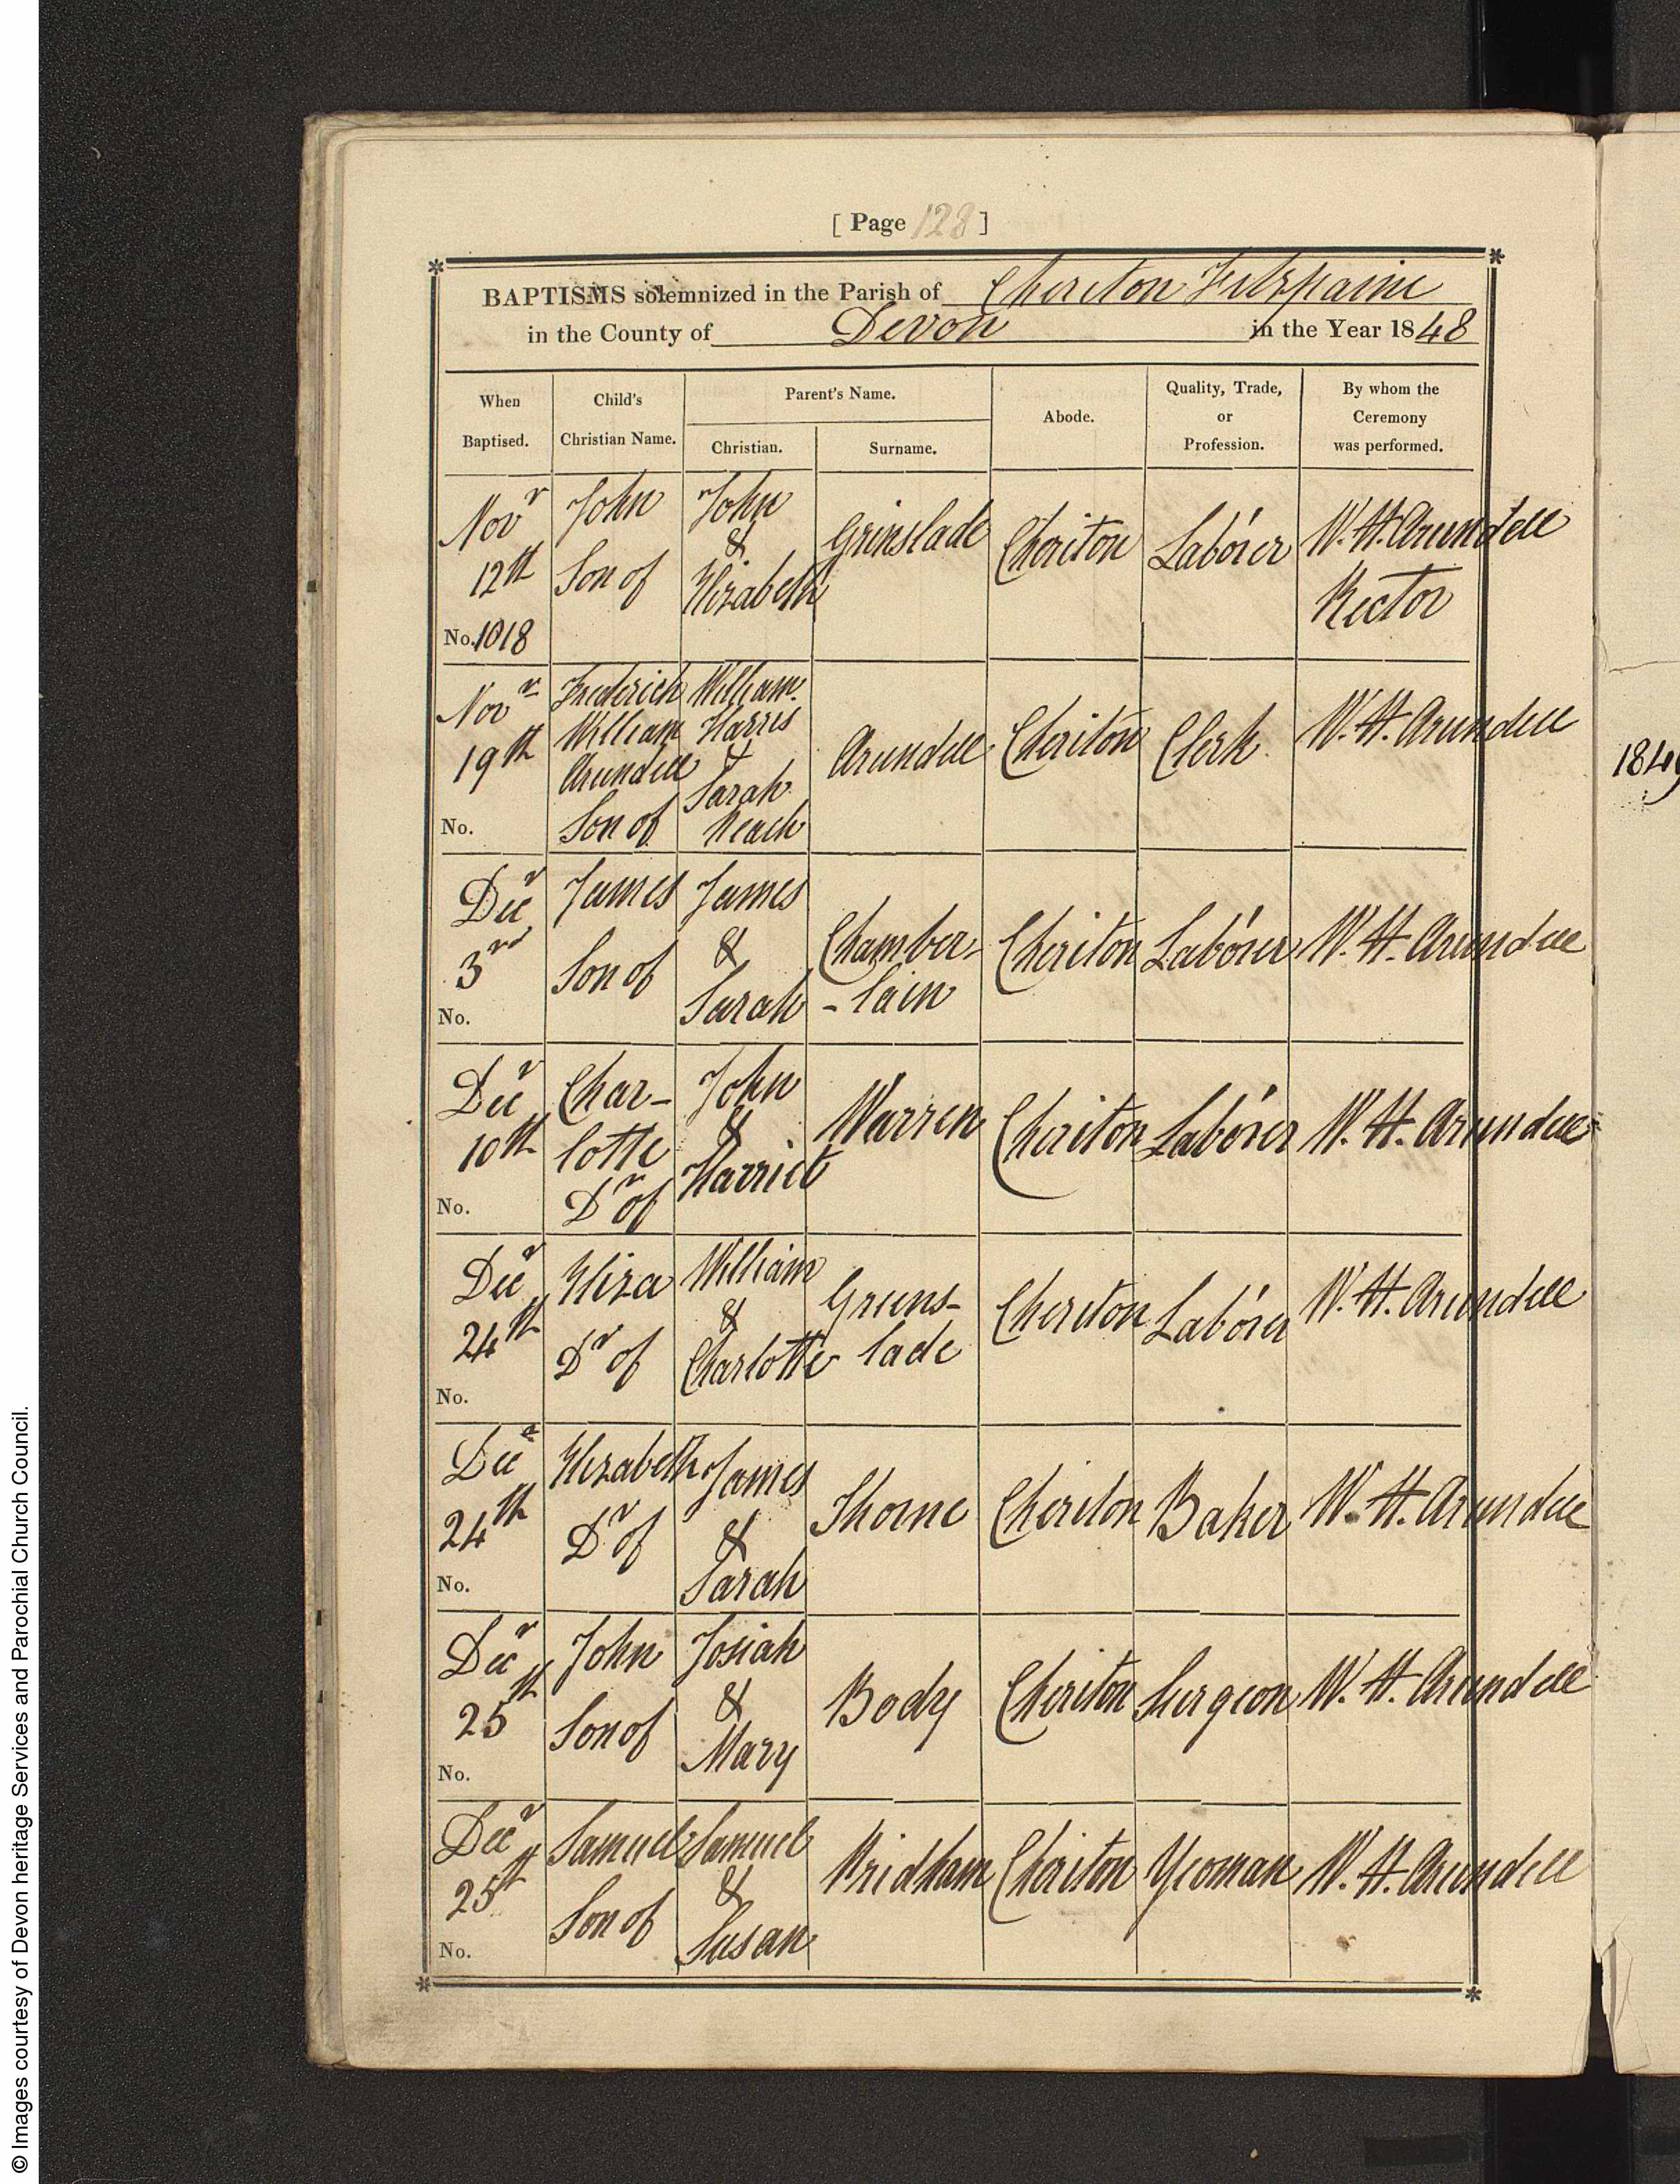 [ Page 128 ]
BAPTISMS solemnized in the Parish of Cheriton Fitzpaine
in the County of Devon in the Year 1848
When Baptised.
Child's Christian Name.
Parent's Name.
Christian.
Surname.
Abode.
Quality, Trade, or Profession.
By whom the Ceremony was performed.
Novr 12th No. 1018
John Son of
John & Elizabeth
Grinslade
Cheriton
Labórer
W. H. Arundell Rector
Novr 19th No.
Frederick William Arundell Son of
William Harris & Sarah
Arundell
Cheriton
Clerk
W. H. Arundell
Decr 3rd No.
James Son of
James & Sarah
Chamber-
-lain
Cheriton
Labórer
W. H. Arundell
Decr 10th No.
Char-
lotte
Dr of
John & Harriet
Warren
Cheriton
Labórer
W. H. Arundell
Decr 24th No.
Eliza Dr of
William & Charlotte
Greens-
lade
Cheriton
Labórer
W. H. Arundell
Decr 24th No.
Elizabeth Dr of
James & Sarah
Thorne
Cheriton
Baker
W. H. Arundell
Decr 25th No.
John Son of
Josiah & Mary
Body
Cheriton
Surgeon
W. H. Arundell
Decr 25th No.
Samuel Son of
Samuel & Susan
Pridham
Cheriton
Yeoman
W. H. Arundell
1849
© Images courtesy of Devon heritage Services and Parochial Church Council.